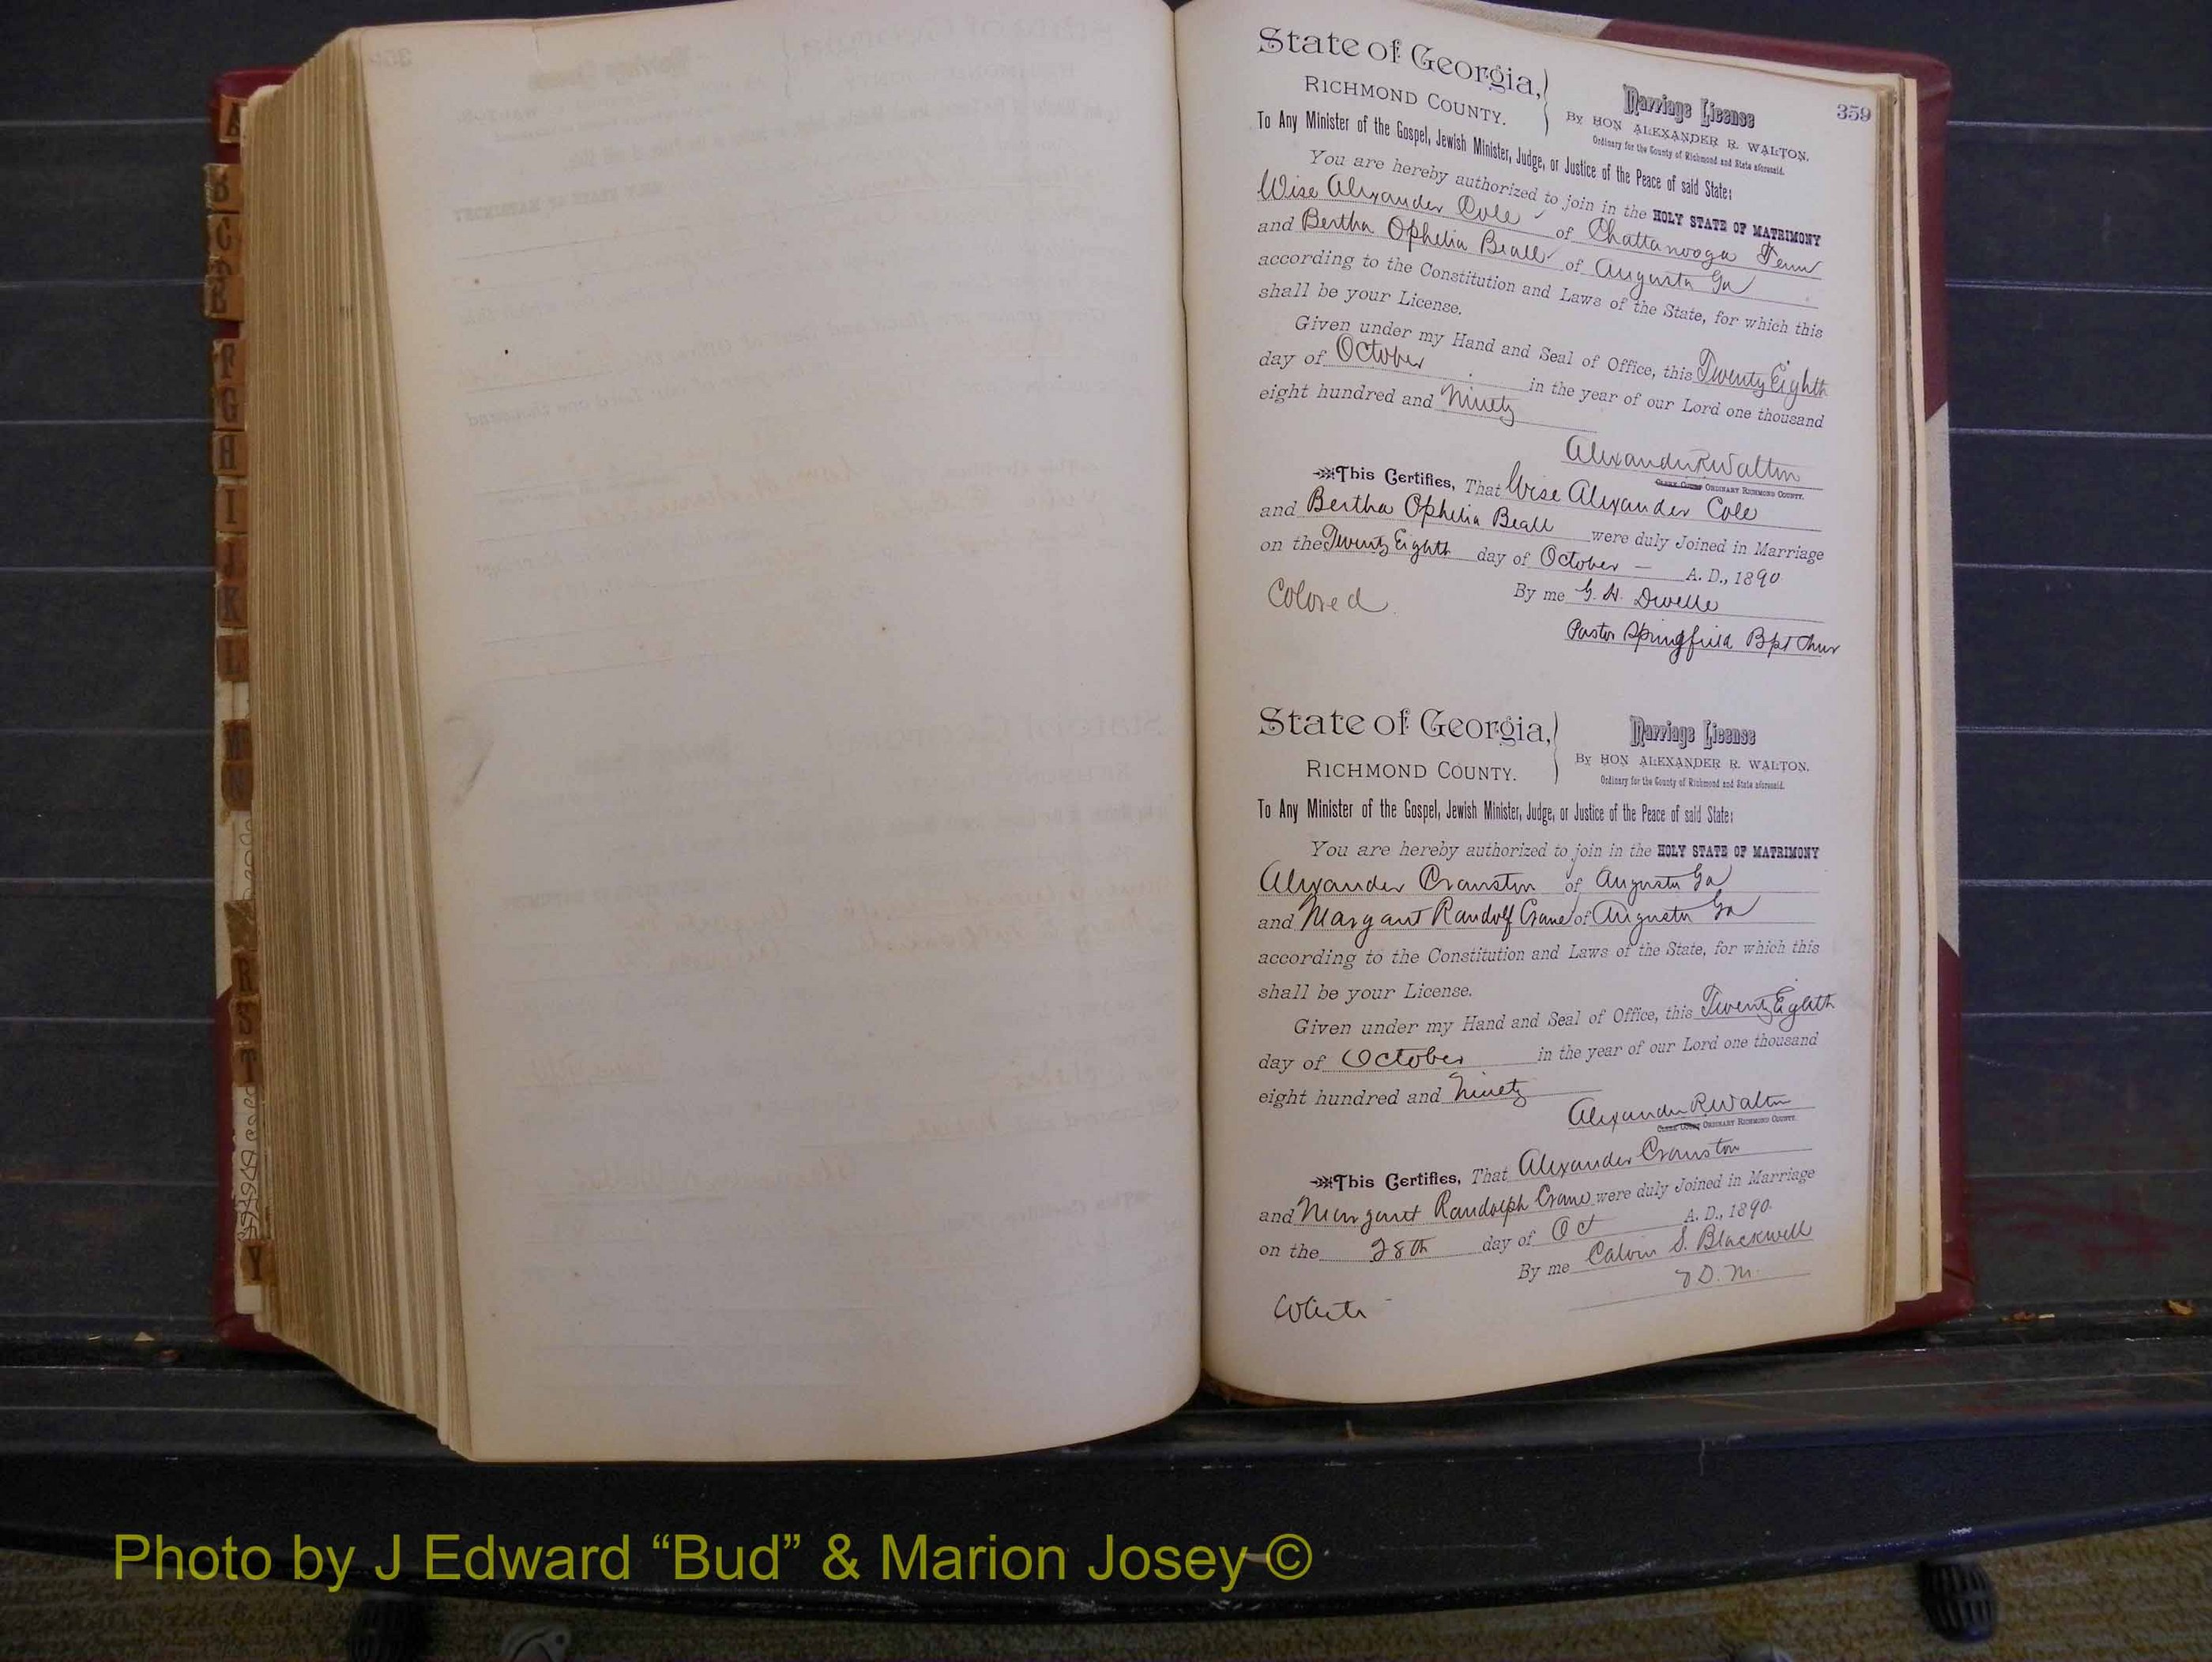 A
B
C
D
E
F
G
H
I
J
K
L
M
N
R
S
T
Y
State of Georgia,
RICHMOND COUNTY.
Marriage License
By HON ALEXANDER R. WALTON,
Ordinary for the County of Richmond and State aforesaid.
359
To Any Minister of the Gospel, Jewish Minister, Judge, or Justice of the Peace of said State:
You are hereby authorized to join in the HOLY STATE OF MATRIMONY
Wise Alexander Cole of Chattanooga Tenn
and Bertha Ophelia Beall of Augusta Ga
according to the Constitution and Laws of the State, for which this
shall be your License.
Given under my Hand and Seal of Office, this Twenty Eighth
day of October in the year of our Lord one thousand
eight hundred and Ninety
Alexander R Walton
CLERK COURT ORDINARY RICHMOND COUNTY.
This Certifies, That Wise Alexander Cole
and Bertha Ophelia Beall were duly Joined in Marriage
on the Twenty Eighth day of October — A. D., 1890
By me G. H. Dwelle
Colored
Pastor Springfield Bpt Chur
State of Georgia,
RICHMOND COUNTY.
Marriage License
By HON ALEXANDER R. WALTON,
Ordinary for the County of Richmond and State aforesaid.
To Any Minister of the Gospel, Jewish Minister, Judge, or Justice of the Peace of said State:
You are hereby authorized to join in the HOLY STATE OF MATRIMONY
Alexander Cranston of Augusta Ga
and Margaret Randolf Crane of Augusta Ga
according to the Constitution and Laws of the State, for which this
shall be your License.
Given under my Hand and Seal of Office, this Twenty Eighth
day of October in the year of our Lord one thousand
eight hundred and Ninety
Alexander R Walton
CLERK COURT ORDINARY RICHMOND COUNTY.
This Certifies, That Alexander Cranston
and Margaret Randolph Crane were duly Joined in Marriage
on the 28th day of Oct A. D., 1890
By me Calvin S. Blackwell
V D. M.
White
Photo by J Edward “Bud” & Marion Josey ©